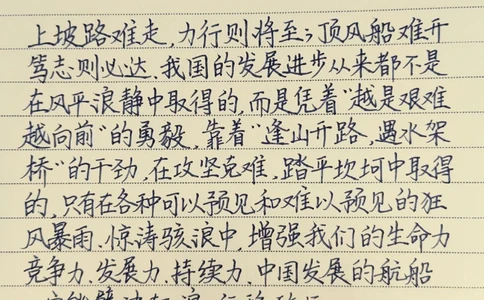 上坡路难走,力行则将至;顶风船难开
笃志则必达.我国的发展进步从来都不是
在风平浪静中取得的,而是凭着“越是艰难
越向前”的勇毅,靠着“逢山开路,遇水架
桥”的干劲,在攻坚克难,踏平坎坷中取得
的,只有在各种可以预见和难以预见的狂
风暴雨.惊涛骇浪中,增强我们的生命力
竞争力.发展力.持续力,中国发展的航船